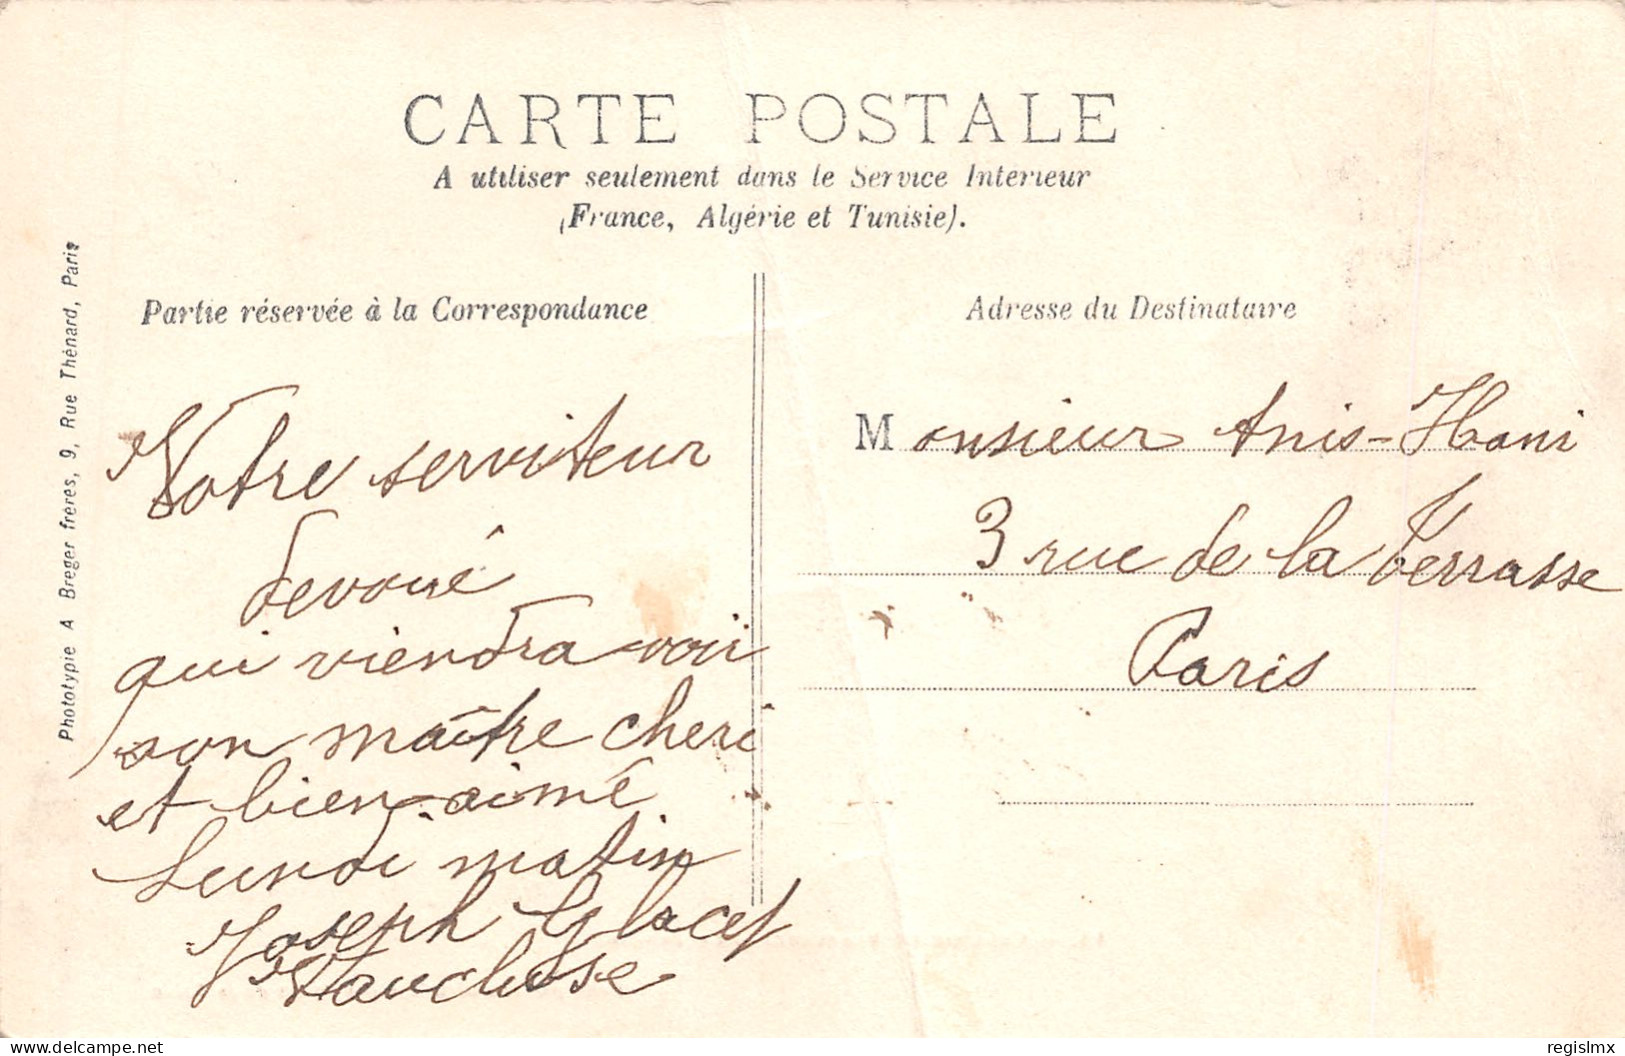 CARTE POSTALE
A utiliser seulement dans le Service Intérieur
(France, Algérie et Tunisie).
Phototypie A Breger frères, 9, Rue Thénard, Paris
Partie réservée à la Correspondance
Votre serviteur
devoué
qui viendra voir
son maître cheri
et bien-aimé
Lundi matin
Joseph Glacet
Vaucluse
Adresse du Destinataire
Monsieur Anis-Hani
3 rue de la Terrasse
Paris
regislmx
delcampe.net